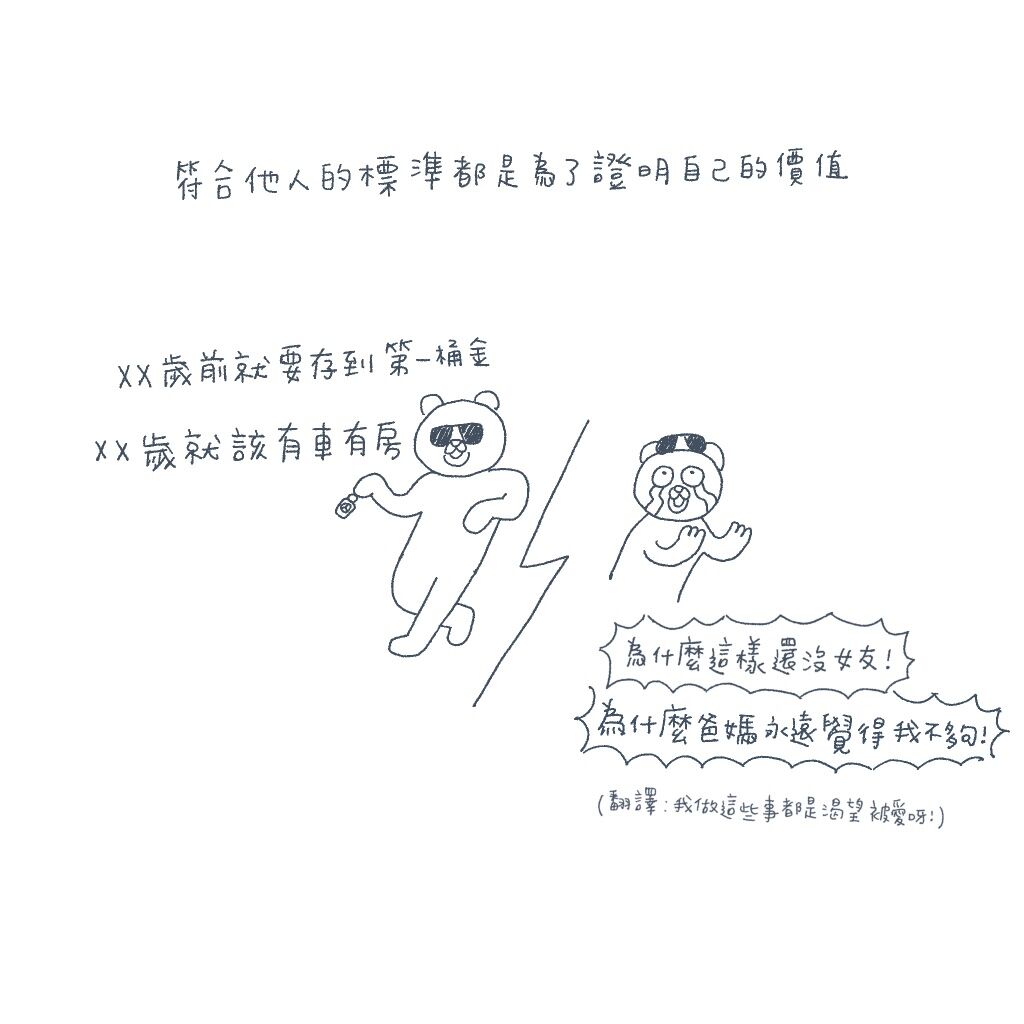 符合他人的標準都是為了證明自己的價值
XX歲前就要存到第一桶金
XX歲就該有車有房
為什麼這樣還沒女友!
為什麼爸媽永遠覺得我不夠!
(翻譯:我做這些事都是渴望被愛呀!)